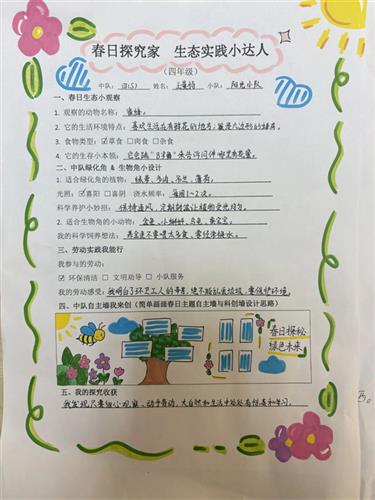 春日探究家 生态实践小达人
(四年级)
中队: 四(5) 姓名: 小队: 阳光小队
一、春日生态小观察
1. 观察的动物名称: 蜜蜂。
2. 它的生活环境特点: 喜欢生活在有鲜花的地方,
3. 食物类型: ☑草食 □肉食 □杂食
4. 它的生存小本领: 它会跳"8字舞"来告诉同伴哪里有花蜜。
二、中队绿化角 & 生物角小设计
1. 适合绿化角的植物: 绿萝、多肉、吊兰、薄荷。
光照: ☑喜阳 □喜阴 浇水频率: 每周1~2次。
科学养护小妙招: 保持通风,定期转盆让植物受光均匀。
2. 适合生物角的小动物: 金鱼、小蝌蚪、乌龟、
我的科学饲养想法: 养金鱼不要喂太多食,要经常换水。
三、劳动实践我能行
我参与的劳动:
☑ 环保清洁 □ 文明劝导 □ 小队服务
我的劳动感受: 我明白了环卫工人的辛苦,绝不能乱丢垃圾,要保护环境。
四、中队自主墙我来创(简单画画春日主题自主墙与科创墙设计思路)
春日探秘
绿色未来
五、我的探究收获
我发现只要细心观察、动手劳动,大自然和生活中处处有惊喜和学习。